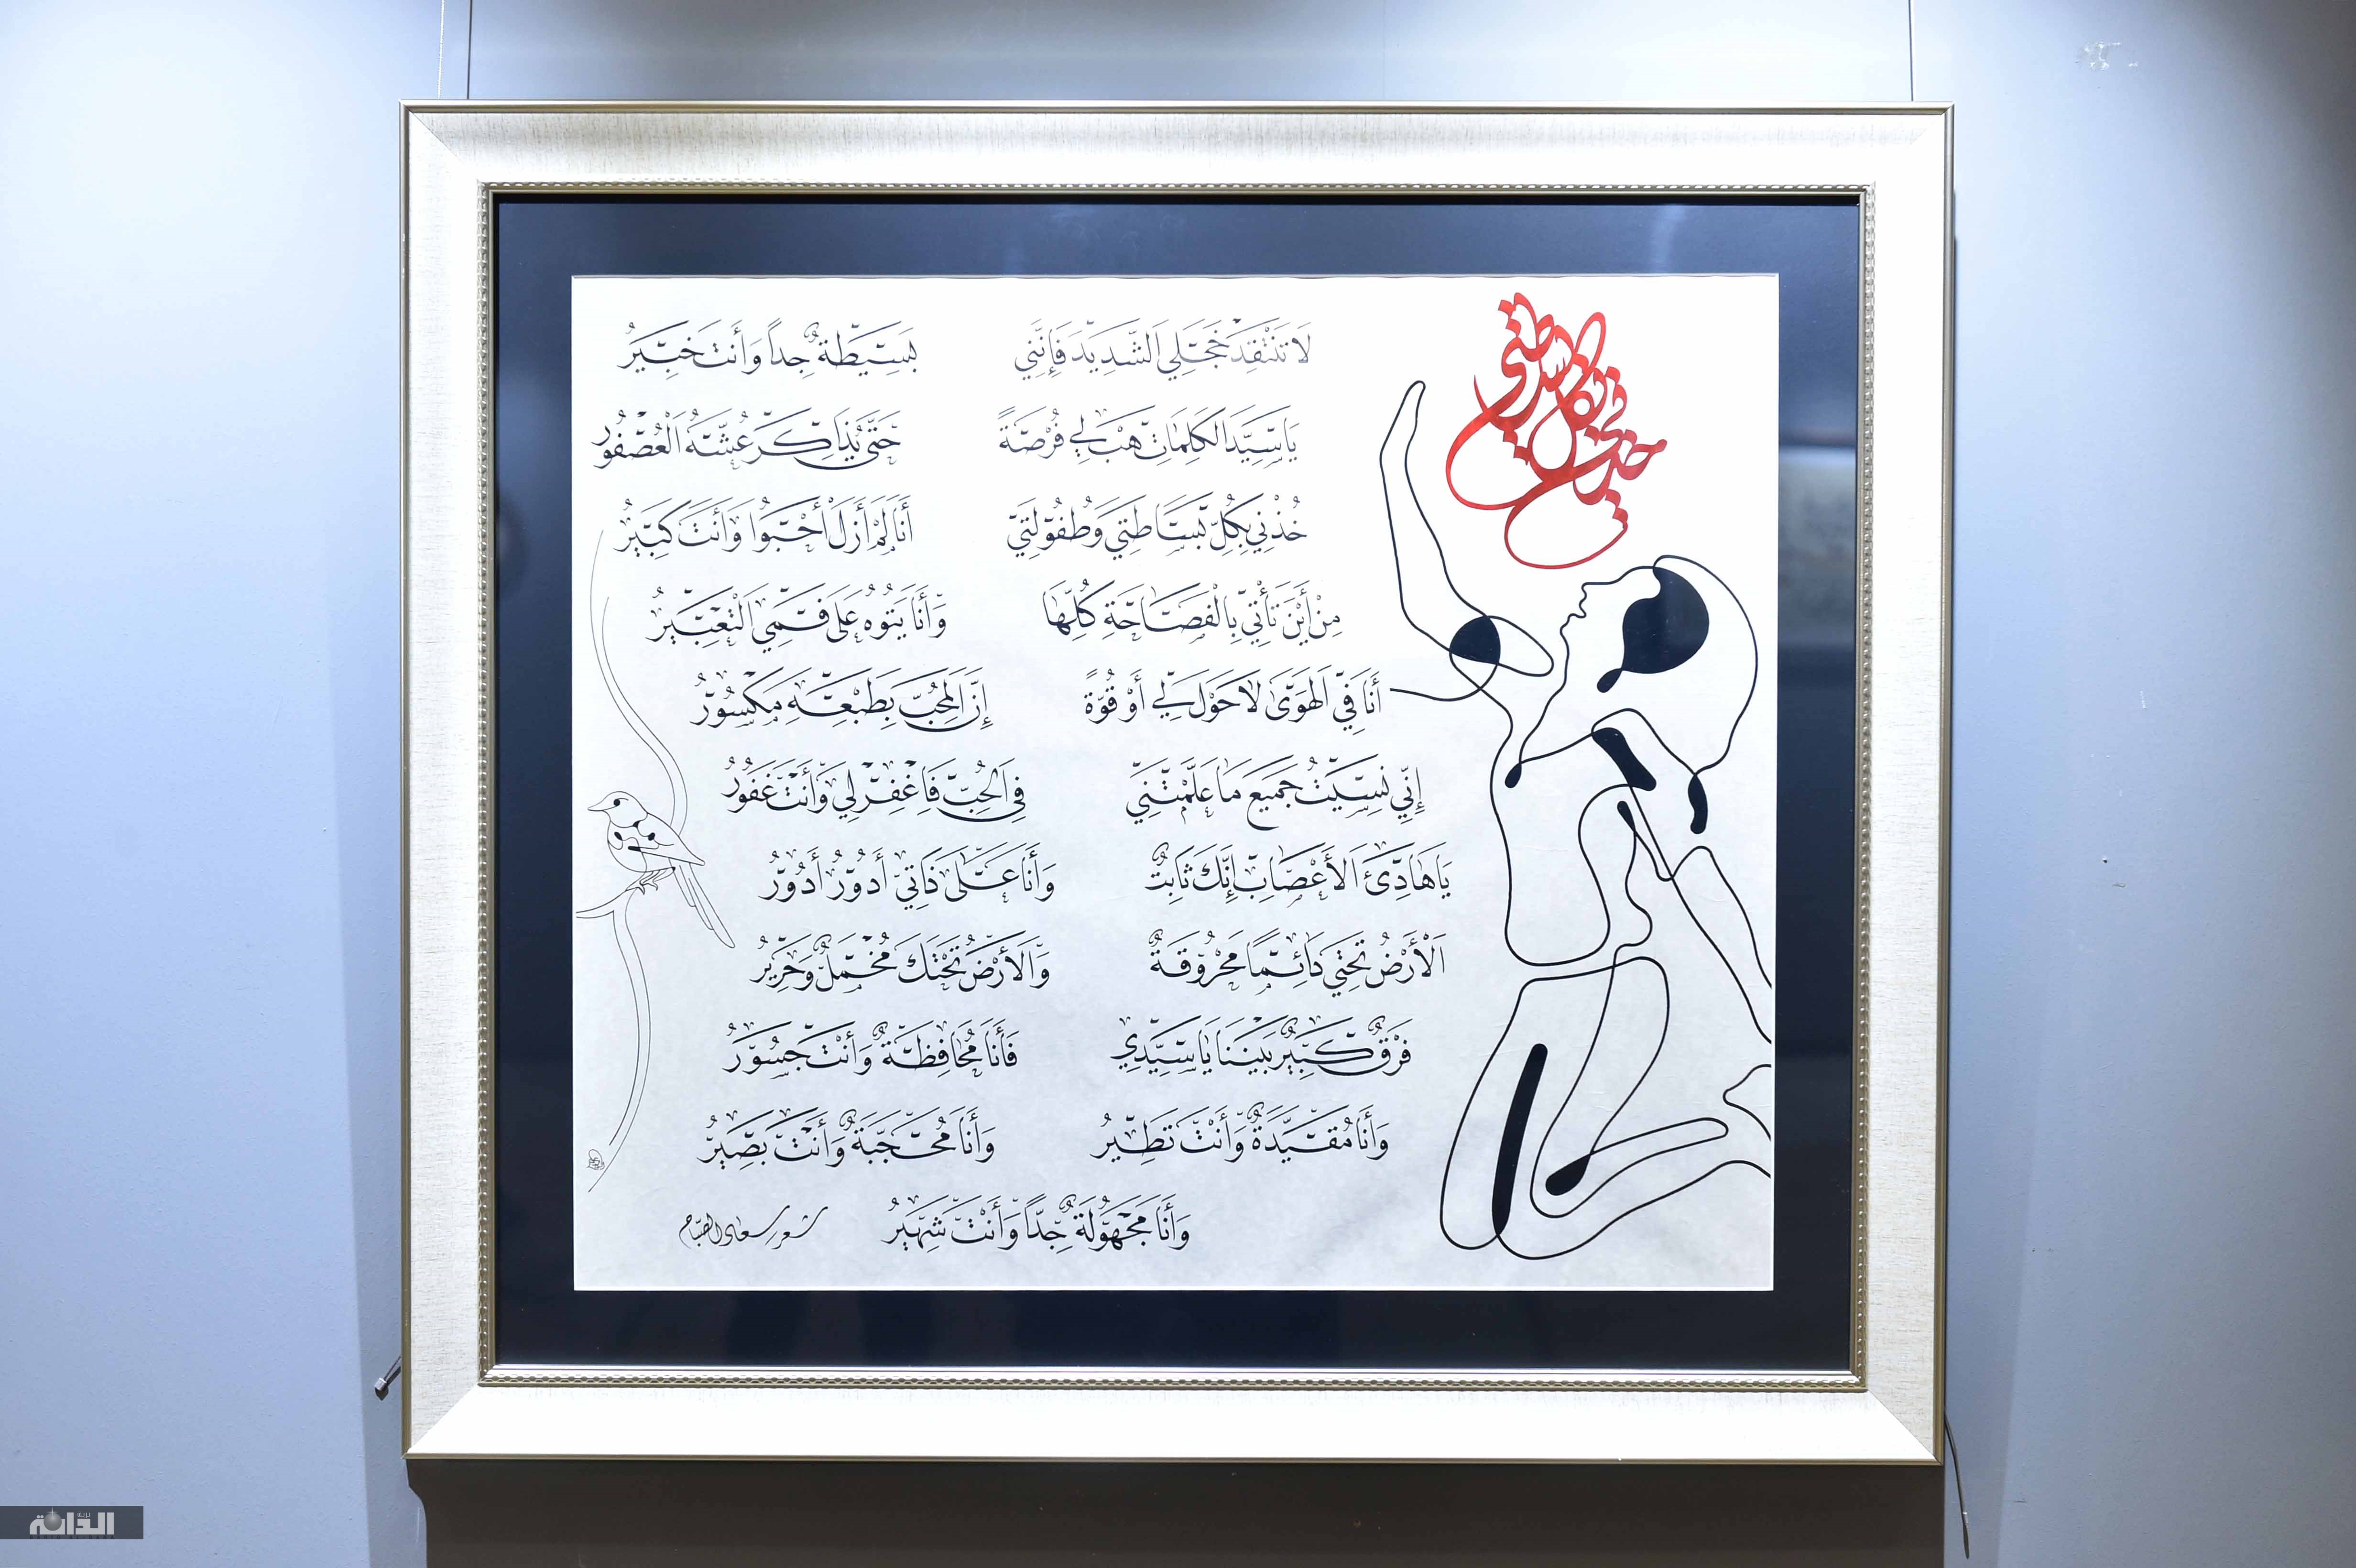 خذني بكل بساطتي
لَا تَنْتَقِدْ خَجَلِي الشَّدِيدَ فَإِنَّنِي بَسِيطَةٌ جِداً وَأَنتَ خَبِيرُ
يَا سَيِّدَ الكَلِمَاتِ هَبْ لِي فُرْصَةً حَتَّى يُذَاكِرَ عُشَّهُ الْعُصْفُورُ
خُذْنِي بِكُلِّ بَسَاطَتِي وَطُفُولَتِي أَنَا لَمْ أَزَلْ أَحْبُوا وَأَنتَ كَبِيرُ
مِنْ أَيْنَ تَأْتِي بِالْفَصَاحَةِ كُلِّهَا وَأَنَا يَتُوهُ عَلَى فَمِي التَّعْبِيرُ
أَنَا فِي الْهَوَى لَا حَوْلَ لِي أَوْ قُوَّةً إِنَّ الْمُحِبَّ بِطَبْعِهِ مَكْسُورُ
إِنِّي نَسِيتُ جَمِيعَ مَا عَلَّمْتَنِي فِي الْحُبِّ فَاغْفِرْ لِي وَأَنْتَ غَفُورُ
يَا هَادِئَ الأَعْصَابِ إِنَّكَ ثَابِتٌ وَأَنَا عَلَى ذَاتِي أَدُورُ أَدُورُ
الْأَرْضُ تَحْتِي دَائِمًا مَحْرُوقَةٌ وَالأَرْضُ تَحْتَكَ مُخْمَلٌ وَحَرِيرُ
فَرْقٌ كَبِيرٌ بَيْنَنَا يَا سَيِّدِي فَأَنَا مُحَافِظَةٌ وَأَنْتَ جَسُورُ
وَأَنَا مُقَيَّدَةٌ وَأَنْتَ تَطِيرُ وَأَنَا مُحَجَّبَةٌ وَأَنْتَ بَصِيرُ
وَأَنَا مَجْهُولَةٌ جِدًّا وَأَنْتَ شَهِيرُ شعر سعاد الصباح
الدانة